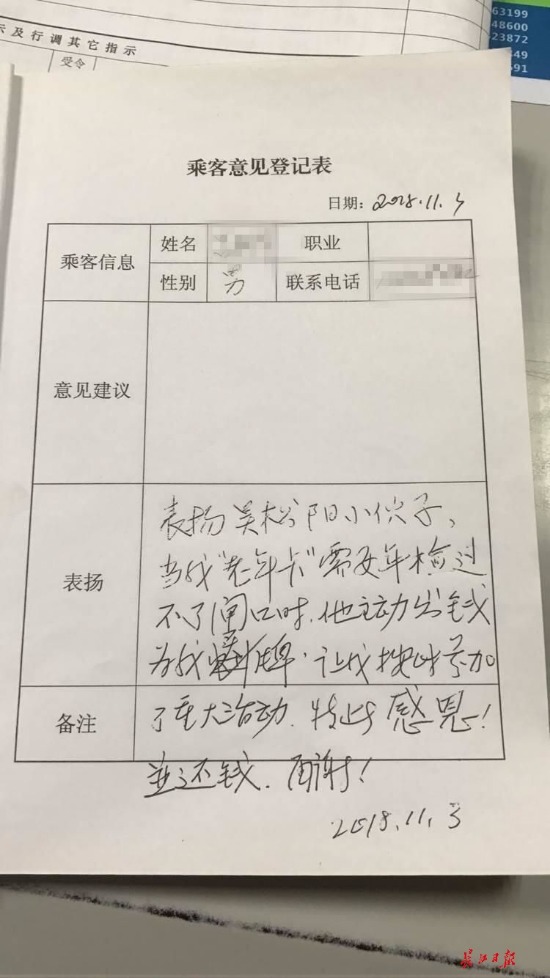 示及行调其它指示
受令
63199
48600
23872
乘客意见登记表
日期: 2018.11.3
乘客信息 姓名 职业
性别 男 联系电话
意见建议
表扬
表扬吴松阳小伙子,
当我“老年卡”需要年检过
不了闸口时,他主动出钱
为我买牌,让我按时参加
备注
了重大活动.特此感恩!
並还钱.再谢!
2018.11.3
长江日报